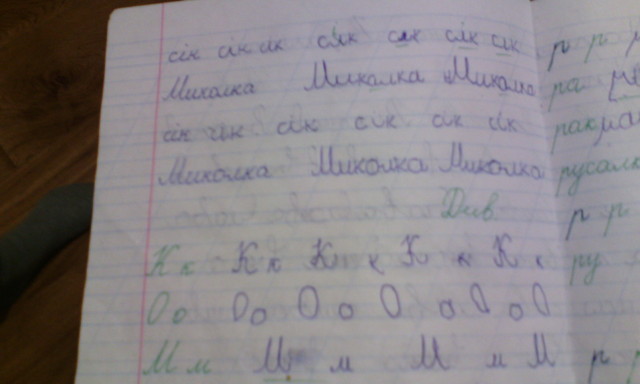 сік сік сік сік сік сік сік
Миколка Миколка Миколка
сік сік сік сік сік сік
Миколка Миколка Миколка
Див
К к К к К к К к К к
О о О о О о О о О о О
М м М м М м М
р р
ра
рак
русалк
р р
ру
р р